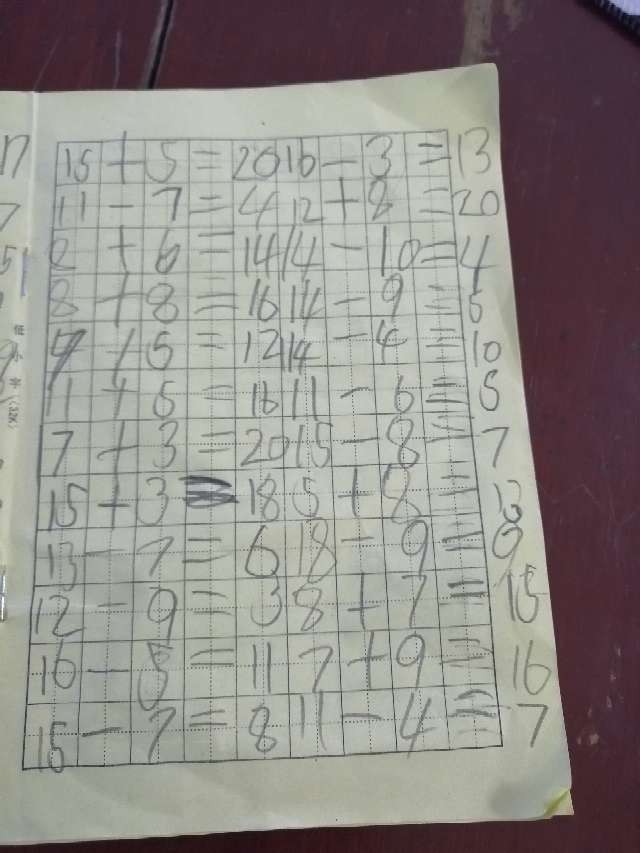 15+5=20 16-3=13
11-7=4 12+8=20
8+6=14 14-10=4
8+8=16 14-9=5
7+5=12 14-4=10
11+5=16 11-6=5
7+3=20 15-8=7
15+3=18 5+8=13
13-7=6 18-9=9
12-9=3 8+7=15
16-5=11 7+9=16
15-7=8 11-4=7